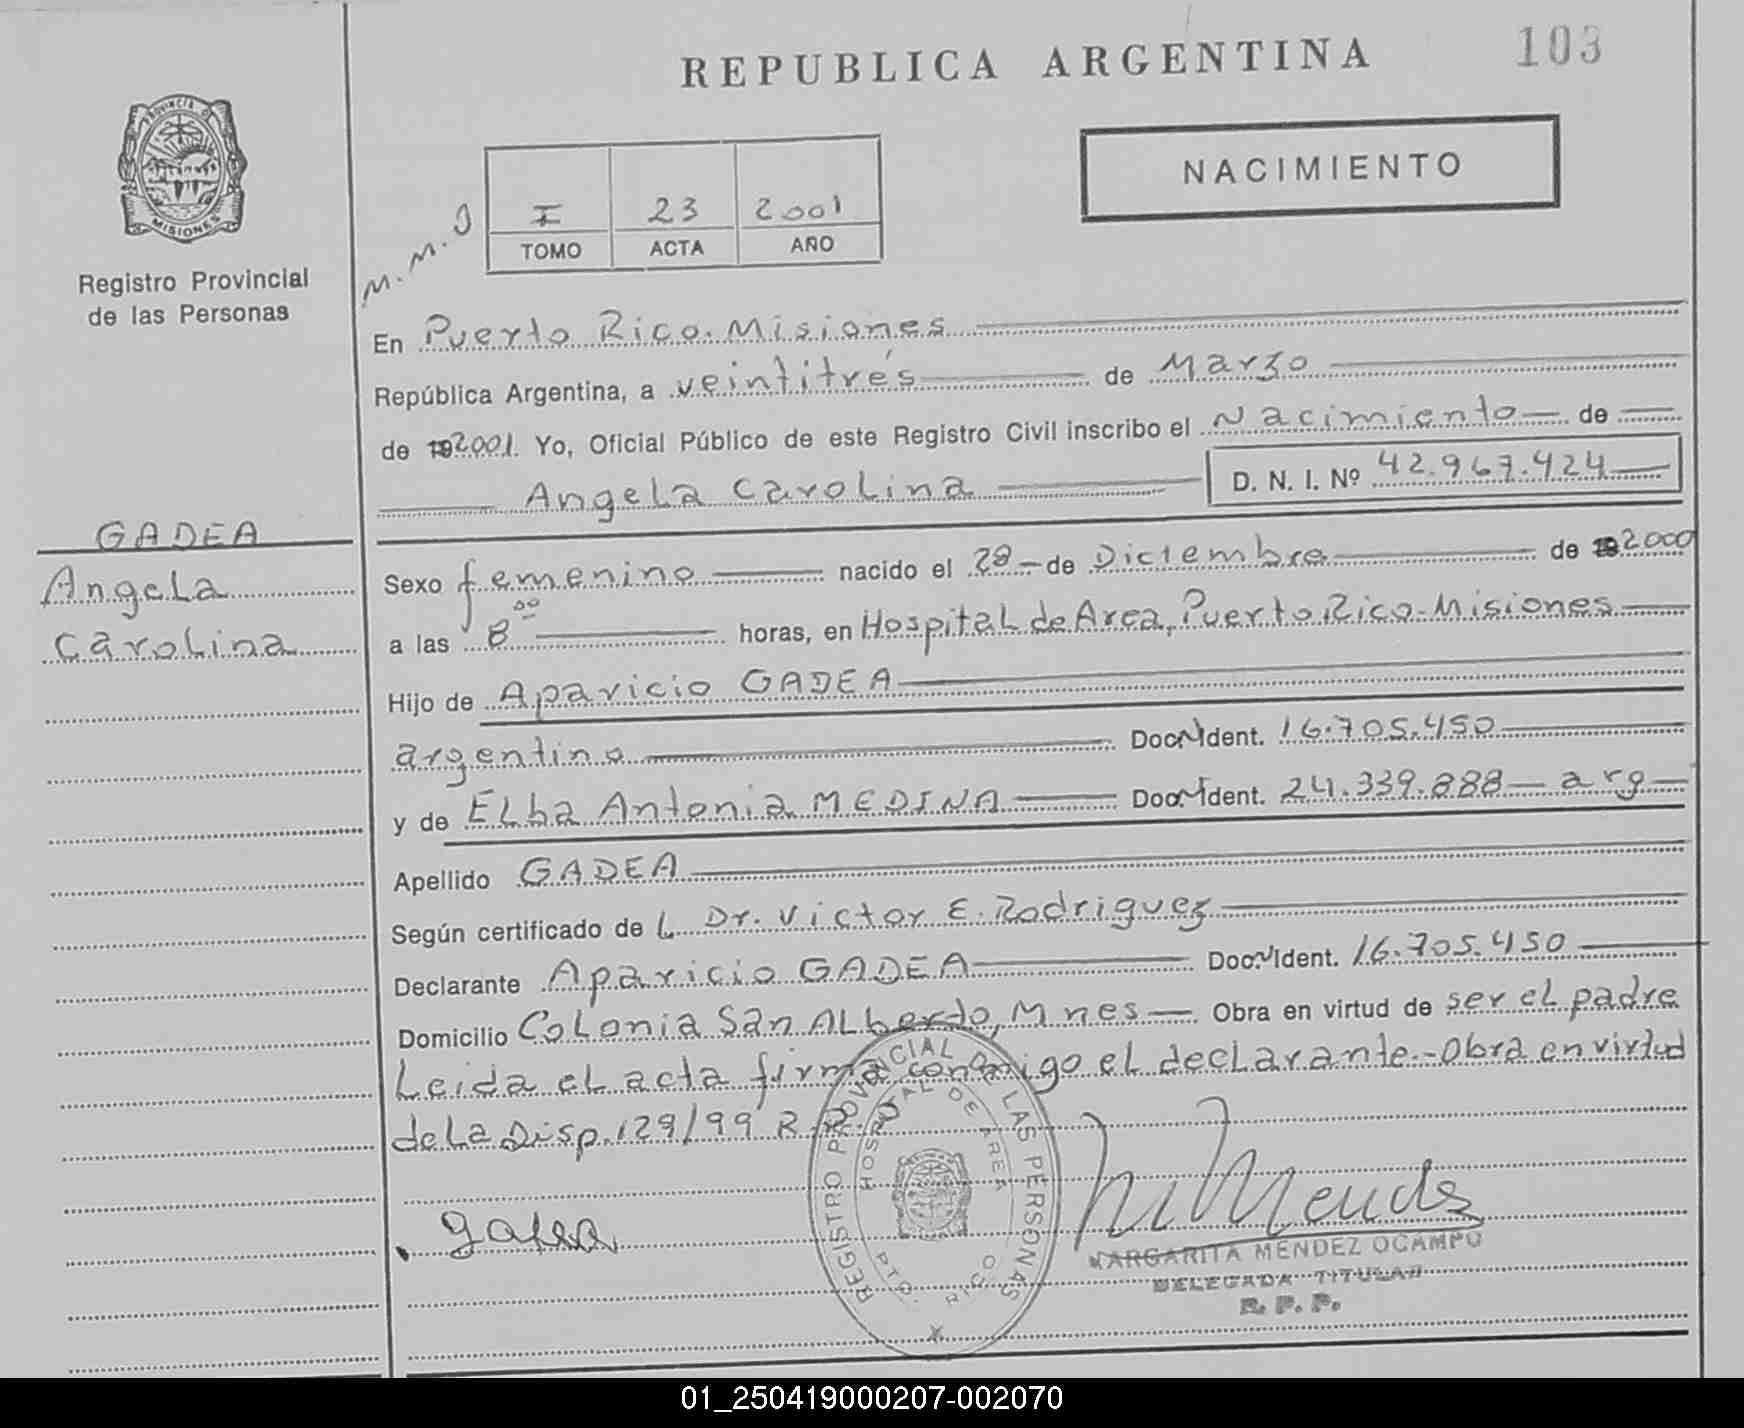 REPUBLICA ARGENTINA
103
NACIMIENTO
PROVINCIA D
MISIONES
Registro Provincial
de las Personas
M.M.O
I 23 2001
TOMO ACTA AÑO
En Puerto Rico. Misiones
República Argentina, a veintitrés de Marzo
de 192001. Yo, Oficial Público de este Registro Civil inscribo el Nacimiento de
Angela Carolina D. N. I. Nº 42.967.424
GADEA
Angela
Carolina
Sexo femenino nacido el 28 de Diciembre de 192000
a las 8 00 horas, en Hospital de Area, Puerto Rico-Misiones
Hijo de Aparicio GADEA
argentino Doc. N Ident. 16.705.450
y de Elba Antonia MEDINA Doc. N Ident. 24.339.888 - arg
Apellido GADEA
Según certificado de L Dr. Victor E. Rodriguez
Declarante Aparicio GADEA Doc. N Ident. 16.705.450
Domicilio Colonia San Alberto, Mnes Obra en virtud de ser el padre
Leida el acta firma conmigo el declarante.- Obra en virtud
de la Disp. 129/99 R.P.P
REGISTRO PROVINCIAL DE LAS PERSONAS
HOSPITAL DE AREA
PTO. RICO
gadea
M Mendez
MARGARITA MENDEZ OCAMPO
DELEGADA TITULAR
R. P. P.
01_250419000207-002070